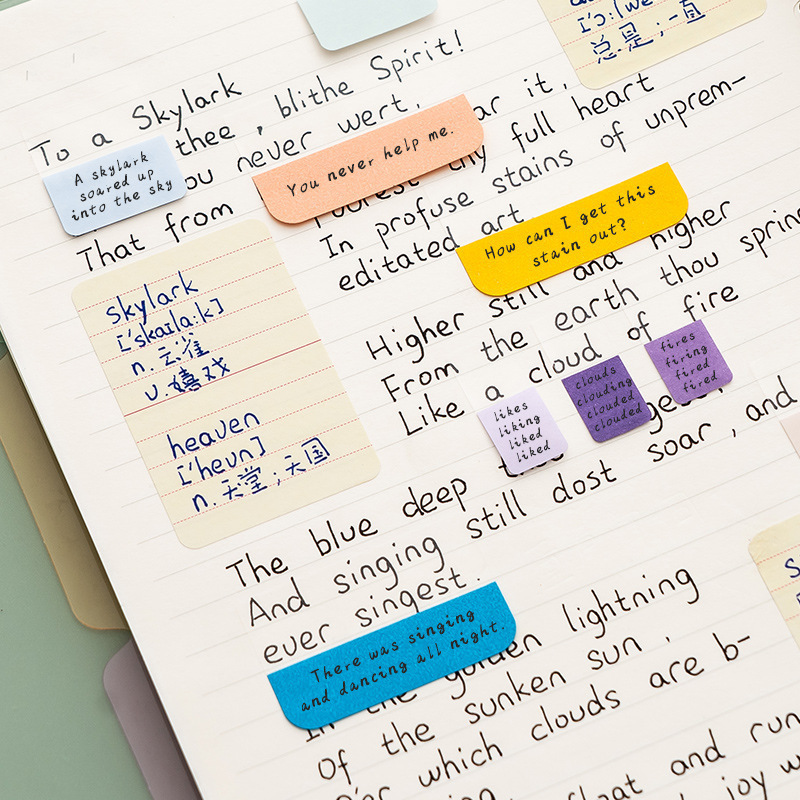 To a Skylark
thee, blithe Spirit!
ou never wert,
ar it,
That from
full heart
In profuse stains of unprem-
editated art
Higher still and higher
From the earth thou sprin
Like a cloud of fire
The blue deep
And singing still dost soar, and
ever singest.
golden lightning
In the
Of the sunken sun,
which clouds are b-
float and run
joy
A skylark
soared up
into the sky
You never help me.
How can I get this
stain out?
likes
liking
liked
liked
clouds
clouding
clouded
clouded
fires
firing
fired
fired
There was singing
and dancing all night.
skylark
['skaɪla:k]
n. 云雀
v. 嬉戏
heaven
['hevn]
n. 天堂；天国
总是；一直